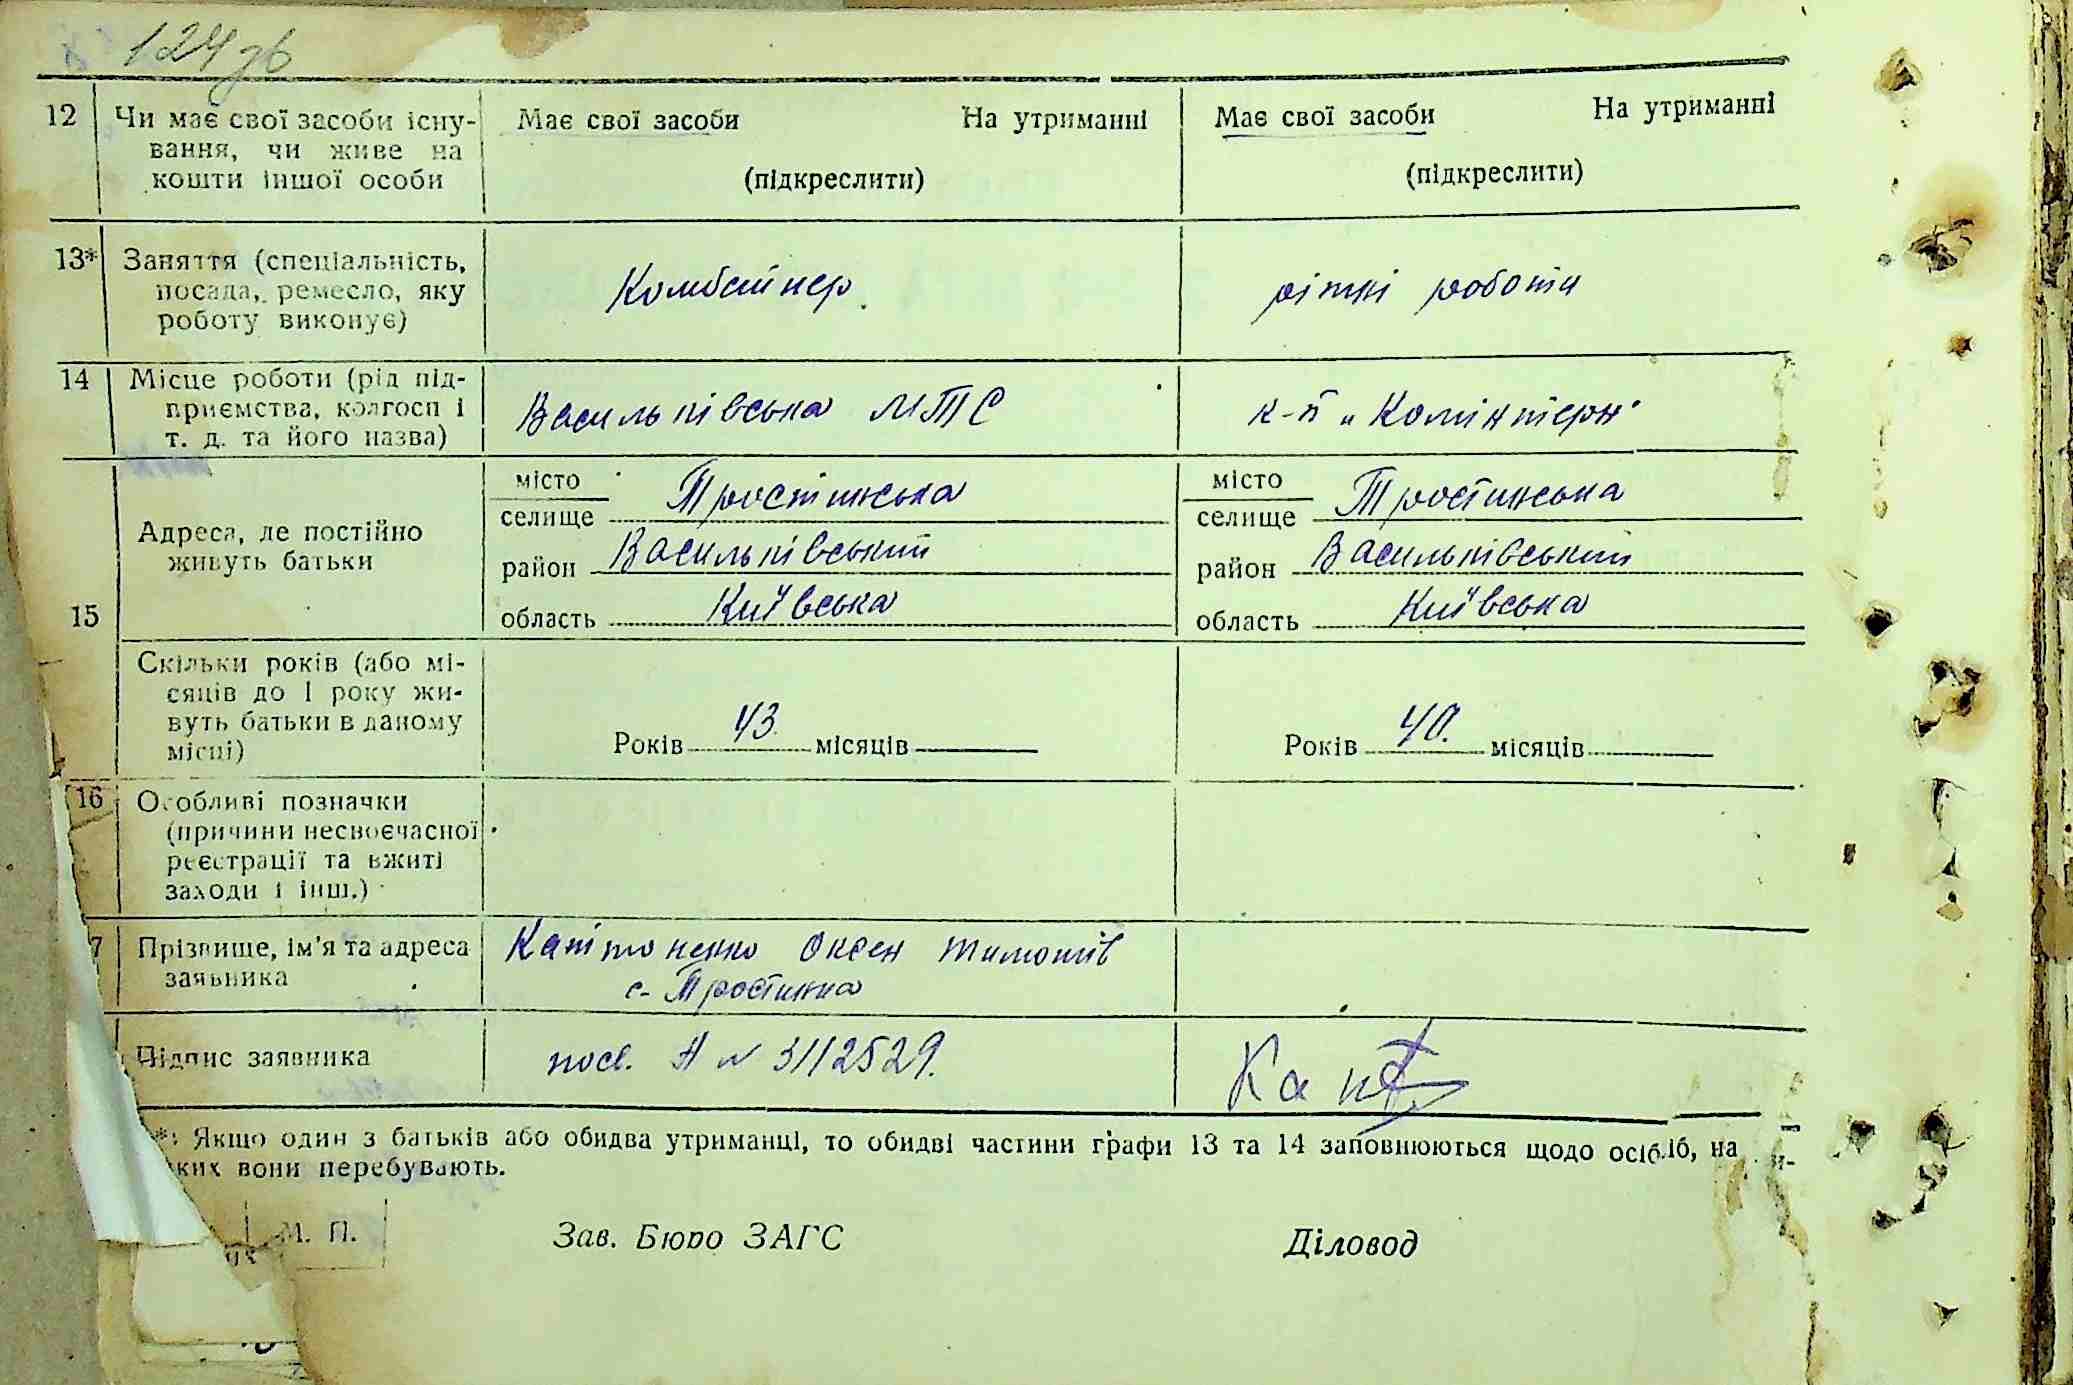 124 зв
12 Чи має свої засоби існу- Має свої засоби На утриманні Має свої засоби На утриманні
вання, чи живе на
кошти іншої особи (підкреслити) (підкреслити)
13* Заняття (спеціальність,
посада, ремесло, яку Комбайнер різні роботи
роботу виконує)
14 Місце роботи (рід під-
приємства, колгосп і Васильківська МТС к-п "Комінтерн"
т. д. та його назва)
місто місто
Тростинська Тростинська
селище селище
Адреса, де постійно
живуть батьки район Васильківський район Васильківський
15 область Київська область Київська
Скільки років (або мі-
сяців до 1 року жи-
вуть батьки в даному
місці) Років 43 місяців Років 40. місяців
16 Особливі позначки
(причини несвоєчасної
реєстрації та вжиті
заходи і інш.)
7 Прізвище, ім'я та адреса Капітоненко Оксен Тимотів
заявника с. Тростинка
Підпис заявника посв. А № 3112529. Кап
* Якщо один з батьків або обидва утриманці, то обидві частини графи 13 та 14 заповнюються щодо осіб, на
ких вони перебувають.
М. П. Зав. Бюро ЗАГС Діловод